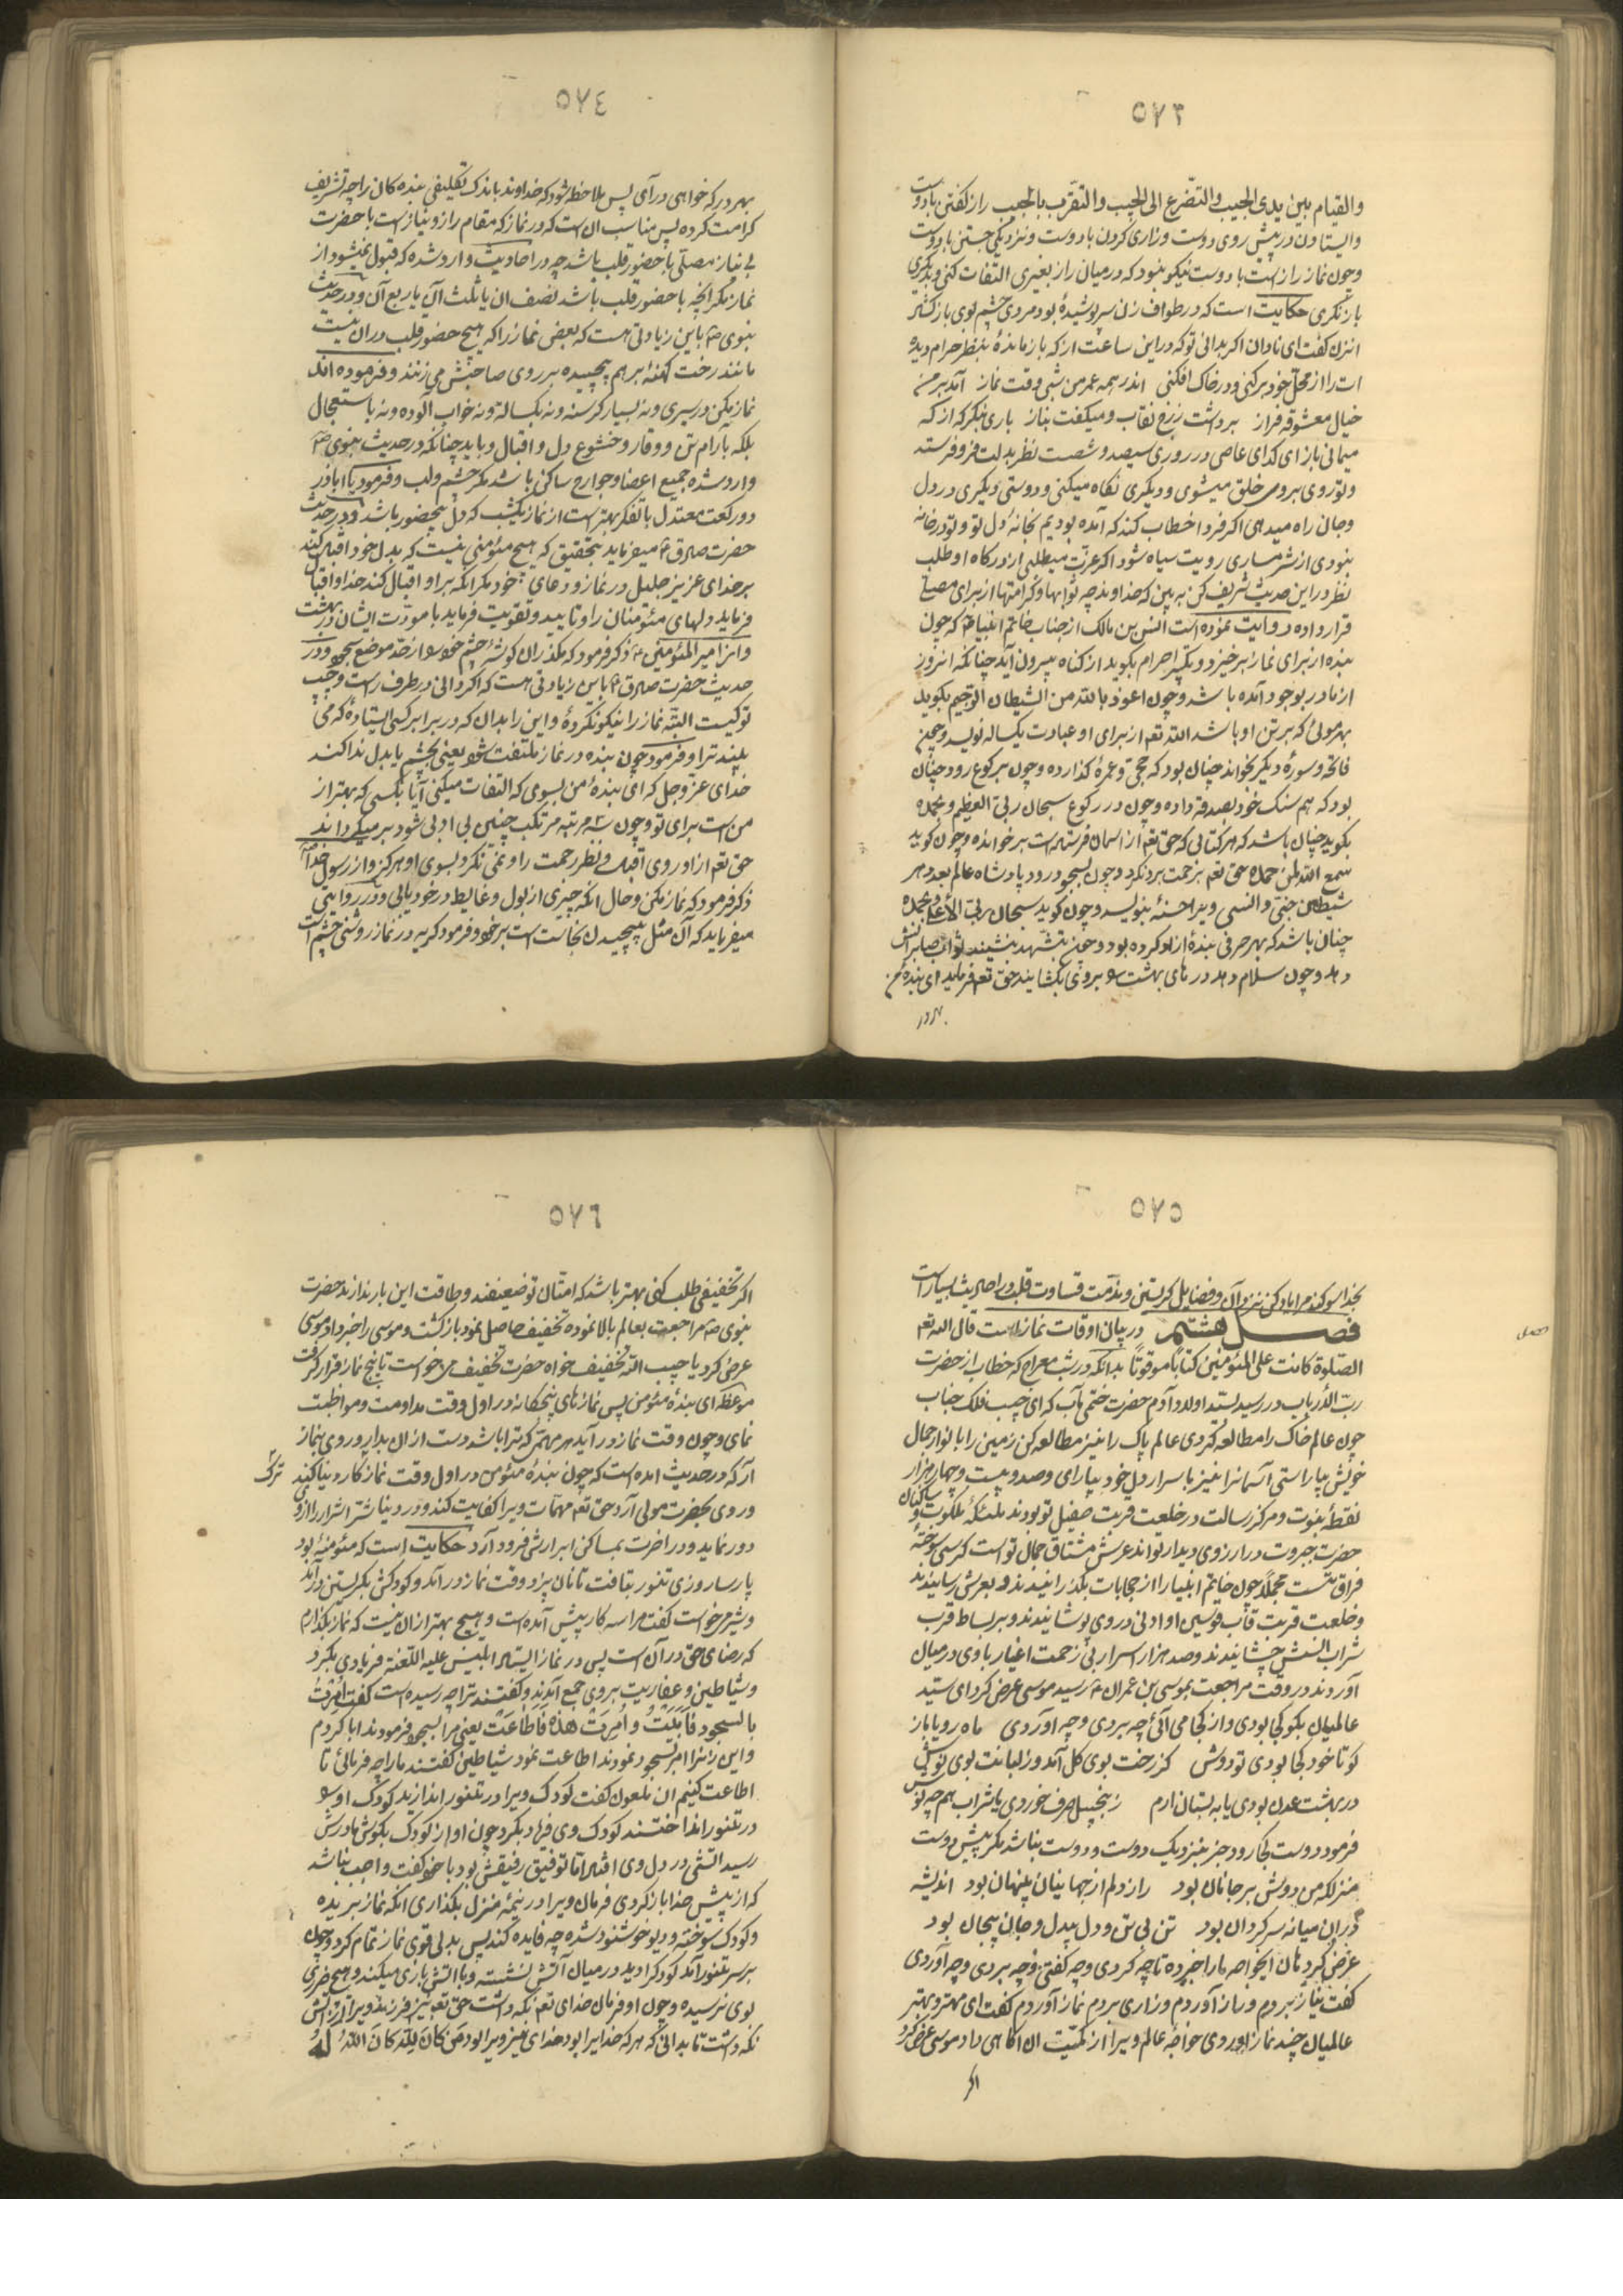 ٥٧٣
والقیام بین یدی الحبیب والتضرع الی الحبیب والتقرب بالحبیب راز کفتن با دوست
وایستادن در پیش روی دوست وزاری کردن با دوست ونزدیکی جستن با دوست
وچون نماز راز است با دوست نیکو نبود که در میان راز بغیری التفات کنی وبدیکری
باز نکری حکایت است که در طواف زن سر پوشیدهٔ بود مردی چشم بوی باز کشاد
انزن کفت ای نادان اکر بدانی تو که در این ساعت از که باز ماندهٔ بنظر حرام دیده
ات را از محل خود برکنی ودر خاک افکنی اندر همه عمر من شبی وقت نماز آمد بر من
خیال معشوقه فراز برداشت زرخ نقاب ومیکفت بناز باری بنکر که از که
میمانی باز ای کدای عاصی در روزی سیصد وشصت نظر بدلت فرو فرستد
وتو روی بروی خلق میشوی ودیکری نکاه میکنی ودوستی دیکری در دل
وجان راه میدهی اکر فردا خطاب کند که آمده بودیم بخانهٔ دل تو وتو در خانه
نبودی از شرمساری رویت سیاه شود اکر عزت میطلبی از درکاه او طلب
نظر در این حدیث شریف کن به بین که خداوند چه ثوابها وکرامتها از برای مصلی
قرار داده روایت نموده است انس بن مالک از جناب خاتم انبیاء ص که چون
بنده از برای نماز برخیزد وتکبیر احرام بکوید از کناه بیرون آید چنانکه انروز
از مادر بوجود آمده باشد وچون اعوذ بالله من الشیطان الرجیم بکوید
بهر موئی که بر تن او باشد الله تعه از برای او عبادت یکساله نویسد وچون
فاتحه وسورهٔ دیکر بخواند چنان بود که حجی وعمرهٔ کذارده وچون برکوع رود چنان
بود که هم سنک خود بصدقه داده وچون در رکوع سبحان ربی العظیم وبحمده
بکوید چنان باشد که هر کتابی که حق تعه از اسمان فرستاده است بر خوانده وچون کوید
سمع الله لمن حمده حق تعه برحمت بردنکرد وچون بسجود رود پادشاه عالم بعدد هر
شیطان جنی وانسی ویرا حسنهٔ بنویسد وچون کوید سبحان ربی الأعلی وبحمده
چنان باشد که بهر حرفی بندهٔ ازاد کرده بود وچون بتشهد بنشیند ثواب صابرانش
دهد وچون سلام دهد درهای بهشت را بروی بکشایند حق تعه فرماید ای بندهٔ من
بهردر
٥٧٤
بهر در که خواهی درآی پس ملاحظه شود که خداوند باندک تکلیفی بنده کان را چه تشریف
کرامت کرده پس مناسب ان است که در نماز که مقام راز ونیاز است با حضرت
بی نیاز مصلی با حضور قلب باشد چه در احادیث وارد شده که قبول نمیشود از
نماز مکر انچه با حضور قلب باشد نصف ان یا ثلث آن یا ربع آن ودر حدیث
نبوی ص باین زیادتی هست که بعض نماز را که هیچ حضور قلب در ان نیست
مانند رخت کهنهٔ بر هم پیچیده بر روی صاحبش می زنند وفرموده اند
نماز مکن در سیری ونه بسیار کرسنه ونه بکسالت ونه خواب آلوده ونه باستعجال
بلکه بآرام تن ووقار وخشوع دل واقبال وباید چنانکه در حدیث نبوی ص
وارد شده جمیع اعضا وجوارح ساکن باشد مکر چشم ولب وفرمود یا اباذر
دو رکعت معتدل با تفکر بهتر است از نماز یکشب که دل بیحضور باشد ودر حدیث
حضرت صادق ع میفرماید بتحقیق که هیچ مئومنی نیست که بدل خود اقبال کند
بر خدای عزیز جلیل در نماز ودعای خود مکر انکه بر او اقبال کند خدا واقبال
فرماید دلهای مئومنان را وتایید وتقویت فرماید با مودت ایشان در بهشت
واز امیر المئومنین ع ذکر فرمود که مکذران کوشهٔ چشم خود را از حد موضع سجود ودر
حدیث حضرت صادق ع باین زیادتی هست که اکر دانی در طرف راست وچپ
تو کیست البته نماز را نیکو نکردهٔ واین را بدان که در برابر کسی ایستادهٔ که می
بیند ترا وفرمود چون بنده در نماز ملتفت شود یعنی بچشم یا بدل ندا کند
خدای عز وجل که ای بندهٔ من بسوی که التفات میکنی آیا بکسی که بهتر از
من است برای تو وچون سه مرتبه مرتکب چنین بی ادبی شود بر میکرداند
حق تعه از او روی اقبال ونظر رحمت را ونمی نکرد بسوی او هرکز واز رسول خدا ص
ذکر فرمود که نماز مکن وحال انکه چیزی از بول وغایط در خود یابی ودر روایتی
میفرماید که آن مثل پیچیدن نجاست است بر خود وفرمود کریه در نماز روشنی چشم است
٥٧٥
بخدا سوکند مرا یاد کن نزد آن وفضایل کریستن ومذمت قساوت قلب در احادیث بسیار است
فصل هشتم در بیان اوقات نماز است قال الله تعه
الصلوة کانت علی المئومنین کتابا موقوتا بدانکه در شب معراج که خطاب از حضرت
رب الأرباب در رسید بسید اولاد آدم حضرت ختمی مآب که ای حبیب فلک جناب
چون عالم خاک را مطالعه کردی عالم پاک را نیز مطالعه کن زمین را بانوار جمال
خویش بیاراستی آسمانرا نیز باسرار دل خود بیارای وصد وبیست وچهار هزار
نقطهٔ نبوت ومرکز رسالت در خلعت قربت صفیل تو بودند ملئکهٔ ملکوت وساکنان
حضرت جبروت در ارزوی دیدار تواند عرش مشتاق جمال تو است کرسی سوخته
فراق تست مجملا چون خاتم انبیا را از حجابات بکذرانیدند وبعرش رسانیدند
وخلعت قربت قاب قوسین او ادنی در وی پوشانیدند وبر بساط قرب
شراب انسش چشانیدند وصد هزار اسرار بی زحمت اغیار با وی در میان
آوردند در وقت مراجعت بموسی بن عمران ع رسید موسی عرض کرد ای سید
عالمیان بکو کجا بودی واز کجا می آئی چه بردی وچه اوردی ماه رویا باز
کو تا خود کجا بودی تو دوش کز رخت بوی کل آمد وز لبانت بوی نوش
در بهشت عدن بودی یا به بستان ارم زنجبیل صرف خوردی یا شراب هم چه نوش
فرمود دوست کجا رود جز بنزدیک دوست ودوست نباشد مکر پیش دوست
منزلکه من دوش بر جانان بود راز دلم از جهانیان پنهان بود اندیشه
در ان میانه سرکردان بود تن بی تن ودل بیدل وجان بیجان بود
عرض کرد هان ایخواجه ما را خبر ده تا چه کردی وچه کفتی وچه بردی وچه آوردی
کفت نیاز بردم وراز آوردم وزاری بردم نماز آوردم کفت ای مهتر وبهتر
عالمیان چند نماز اوردی خواجه عالم ویرا از کمیت ان اکاهی داد موسی عرض کرد
اکر
فصل
٥٧٦
اکر تخفیفی طلب کنی بهتر باشد که امتان تو ضعیفند وطاقت این بار ندارند حضرت
نبوی ص مراجعت بعالم بالا نموده تخفیف حاصل نمود باز کشت وموسی را خبر داد موسی
عرض کرد یا حبیب الله تخفیف خواه حضرت تخفیف می خواست تا پنج نماز قرار کرفت
موعظه ای بندهٔ مئومن پس نماز های پنجکانه در اول وقت مداومت ومواظبت
نمای وچون وقت نماز در آید هر مهمی که ترا باشد دست از ان بدار وروی بنماز
آر که در حدیث امده است که چون بندهٔ مئومن در اول وقت نماز کار دنیا کند ترک
وروی بحضرت مولی آرد حق تعه مهمات ویرا کفایت کند ودر دنیا شر اشرار را از وی
دور نماید ودر اخرت بمساکن ابرارش فرود آرد حکایت است که مئومنهٔ بود
پارسا روزی تنور بتافت تا نان پزد وقت نماز در آمد وکودکش بکریستن در آمد
وشیر می خواست کفت مرا سه کار پیش آمده است وهیچ بهتر از ان نیست که نماز بکذارم
که رضای حق در آن است پس در نماز ایستاد ابلیس علیه اللعنة فریادی بکرد
وشیاطین وعفاریت بر وی جمع آمدند وکفتند ترا چه رسیده است کفت امرت
بالسجود فابیت وامرت هذه فاطاعت یعنی مرا بسجود فرمودند ابا کردم
واین زن را امر بسجود نمودند اطاعت نمود شیاطین کفتند ما را چه فرمائی تا
اطاعت کنیم ان ملعون کفت کودک ویرا در تنور اندازید کودک او را
در تنور انداختند کودک وی فریاد بکرد چون اواز کودک بکوش مادرش
رسید اتشی در دل وی افتاد اما توفیق رفیقش بود با خود کفت واجب نباشد
که از پیش خدا باز کردی فرمان ویرا در نیمهٔ منزل بکذاری انکه نماز بریده
وکودک سوخته ودیو خوشنود شده چه فایده کند پس بدلی قوی نماز تمام کرد وچون
بر سر تنور آمد کودکرا دید در میان آتش نشسته وبا اتش بازی میکند وهیچ ضرری
بوی نرسیده وچون او فرمان خدای تعه نکه داشت حق تعه نیز فرزند ویرا از آتش
نکه داشت تا بدانی که هر که خدایرا بود خدای نیز ویرا بود مَن کانَ لِلّهِ کانَ اللهُ لَهُ